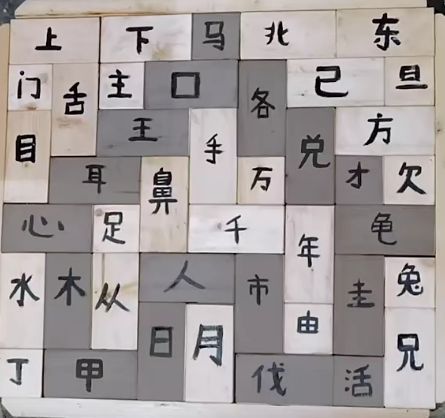 上 下 马 北 东
门 舌 主 口 各 已 旦
目 王 手 兑 方
耳 鼻 万 才 欠
心 足 千 年 龟
水 木 从 人 市 圭 兔
日 月 由 兄
丁 甲 伐 活